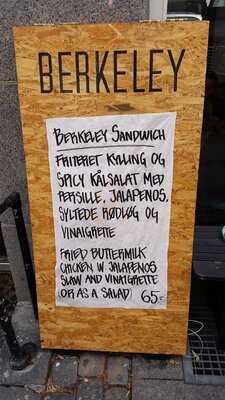 BERKELEY
BERKELEY SANDWICH
FRITERET KYLLING OG
SPICY KÅLSALAT MED
PERSILLE, JALAPENOS,
SYLTEDE RØDLØG OG
VINAIGRETTE
FRIED BUTTERMILK
CHICKEN W. JALAPENOS
SLAW AND VINAIGRETTE
(OR AS A SALAD) 65,-